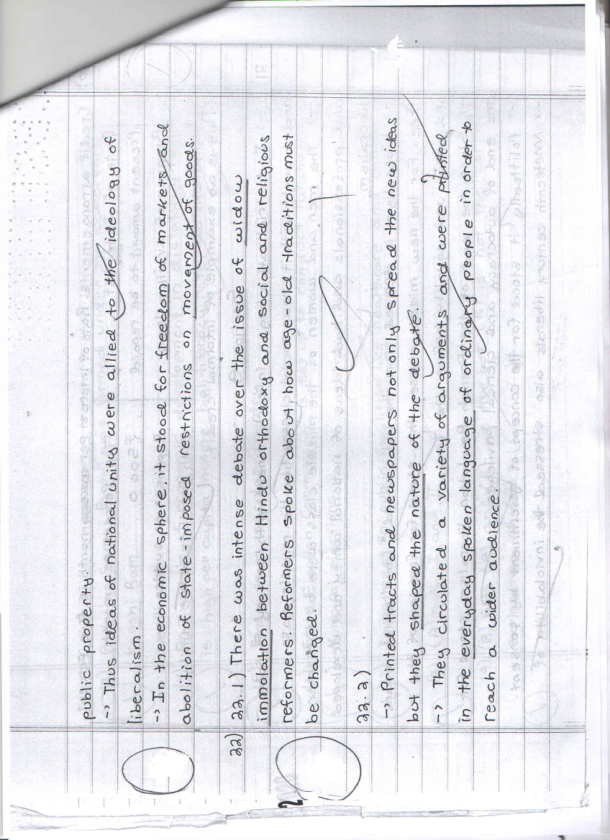 public property.
-> Thus ideas of national unity were allied to the ideology of
liberalism.
-> In the economic sphere, it stood for freedom of markets and
abolition of state-imposed restrictions on movement of goods.
22) 22.1) There was intense debate over the issue of widow
immolation between Hindu orthodoxy and social and religious
reformers. Reformers spoke about how age-old traditions must
be changed.
22.2)
-> Printed tracts and newspapers not only spread the new ideas
but they shaped the nature of the debate.
-> They circulated a variety of arguments and were printed
in the everyday spoken language of ordinary people in order to
reach a wider audience.
2